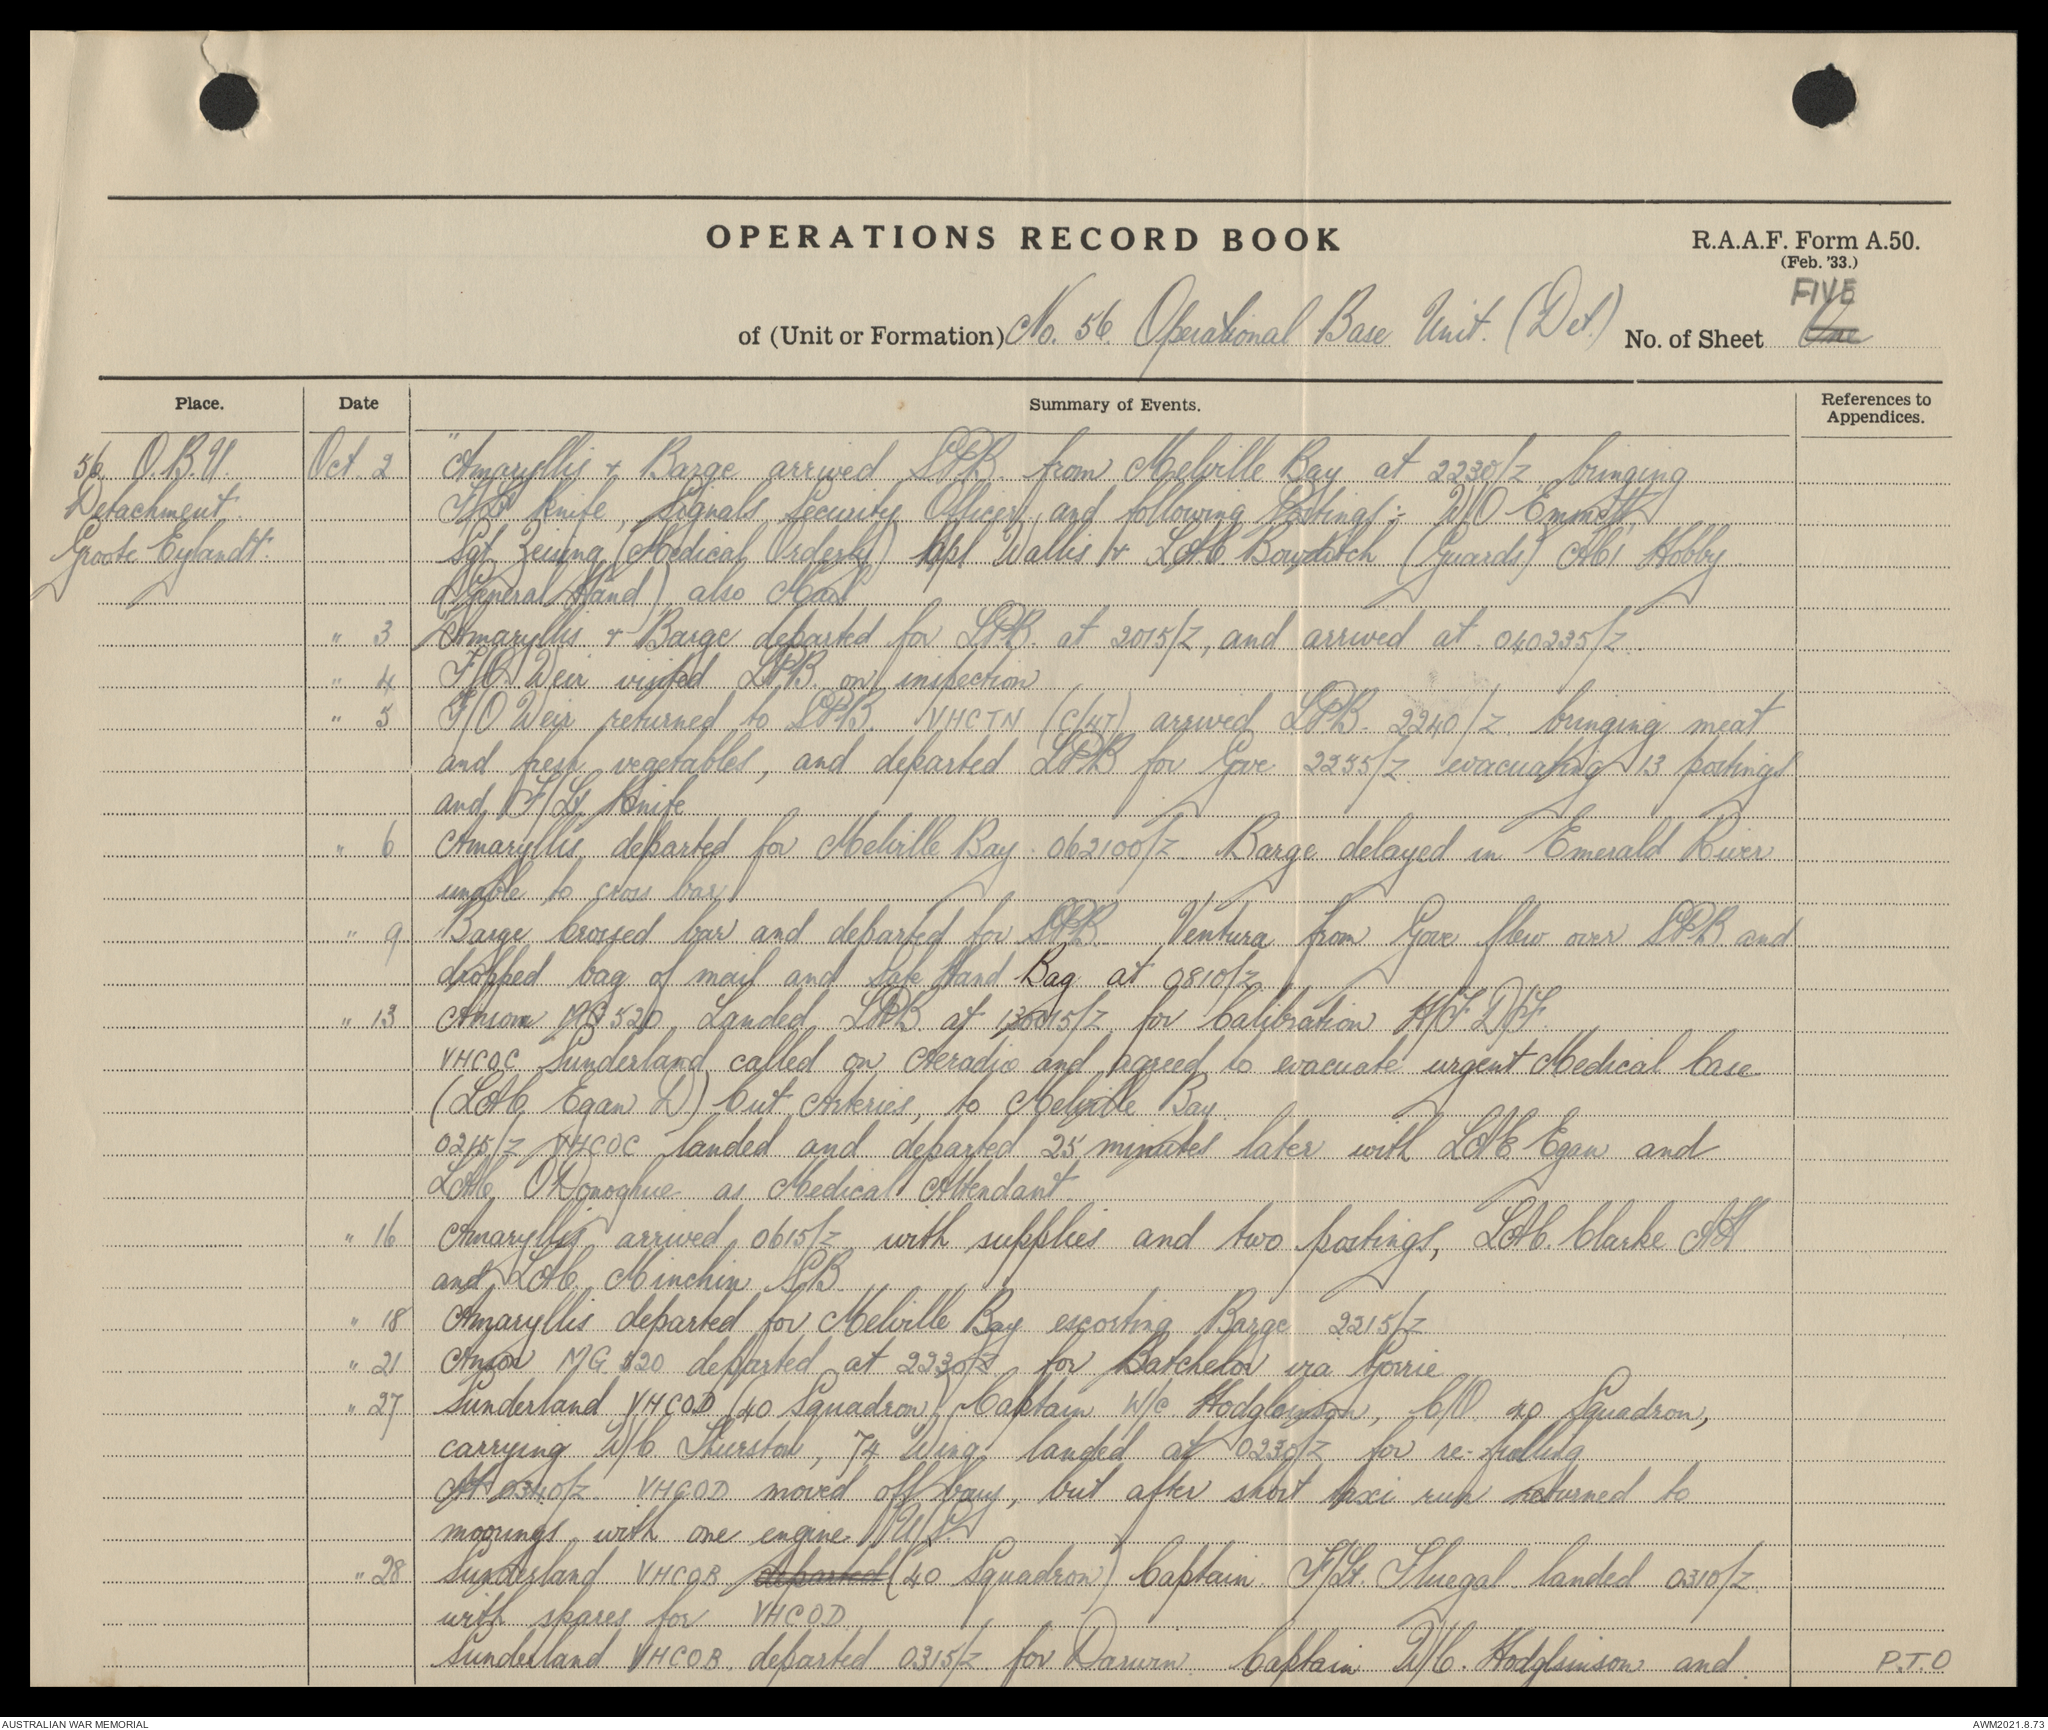 OPERATIONS RECORD BOOK
R.A.A.F. Form A.50.
(Feb. '33.)
FIVE
of (Unit or Formation) No. 56. Operational Base Unit. (Det.) No. of Sheet One
Place. Date Summary of Events. References to Appendices.
56. O.B.U. Oct. 2 "Amaryllis + Barge arrived from Melville Bay at 2230/z bringing
Detachment. F/Lt Knife, Signals Security Officer, and following Postings :- W/O Emmett,
Groote Eylandt. Sgt. Zeising (Medical Orderly) Cpl Wallis + LAC. Bowditch (Guards) AC1 Hobby
(General Hand) also Mail
" 3 Amaryllis + Barge departed for LPB. at 2015/z, and arrived at 040235/z.
" 4 F/O. Weir visited LPB. on inspection
" 5 F/O Weir returned to VHCTN (C/47) arrived LPB. 2240/z. bringing meat
and fresh vegetables, and departed LPB for Gove 2255/z. evacuating 13 postings
and F/Lt. Knife
" 6 Amaryllis departed for Melville Bay 062100/z. Barge delayed in Emerald River
unable to cross bar
" 9 Barge crossed bar and departed for Ventura from Gove flew over LPB and
dropped bag of mail and Safe Hand Bag at 0810/z
" 13 Anson MG 520 Landed LPB at for Calibration H/F D/F.
VHCOC Sunderland called on Aeradio and agreed to evacuate urgent Medical Case
(LAC Egan D) Cut Arteries, to Melville Bay.
0215/z VHCOC landed and departed 25 minutes later with LAC Egan and
LAC O'Donoghue as Medical Attendant.
" 16 Amaryllis arrived 0615/z with supplies and two postings, LAC. Clarke
and LAC. Minchin
" 18 Amaryllis departed for Melville Bay escorting Barge 2215/z
" 21 Anson MG 520 departed at 2230/z for Batchelor via Gorrie
" 27 Sunderland VHCOD (40 Squadron) Captain W/C Hodgkinson, C/O. 40 Squadron,
carrying W/C Thurstan, 74 Wing landed at 0230/z for re-fuelling
At 0340/z. VHCOD moved off buoy, but after short taxi run returned to
moorings with one engine U/S.
" 28 Sunderland VHCOB departed (40 Squadron) Captain. F/Lt. Fluegal landed 0310/z.
with spares for VHCOD.
Sunderland VHCOB. departed 0315/z for Darwin. Captain W/C. Hodgkinson and P.T.O
AUSTRALIAN WAR MEMORIAL AWM2021.8.73